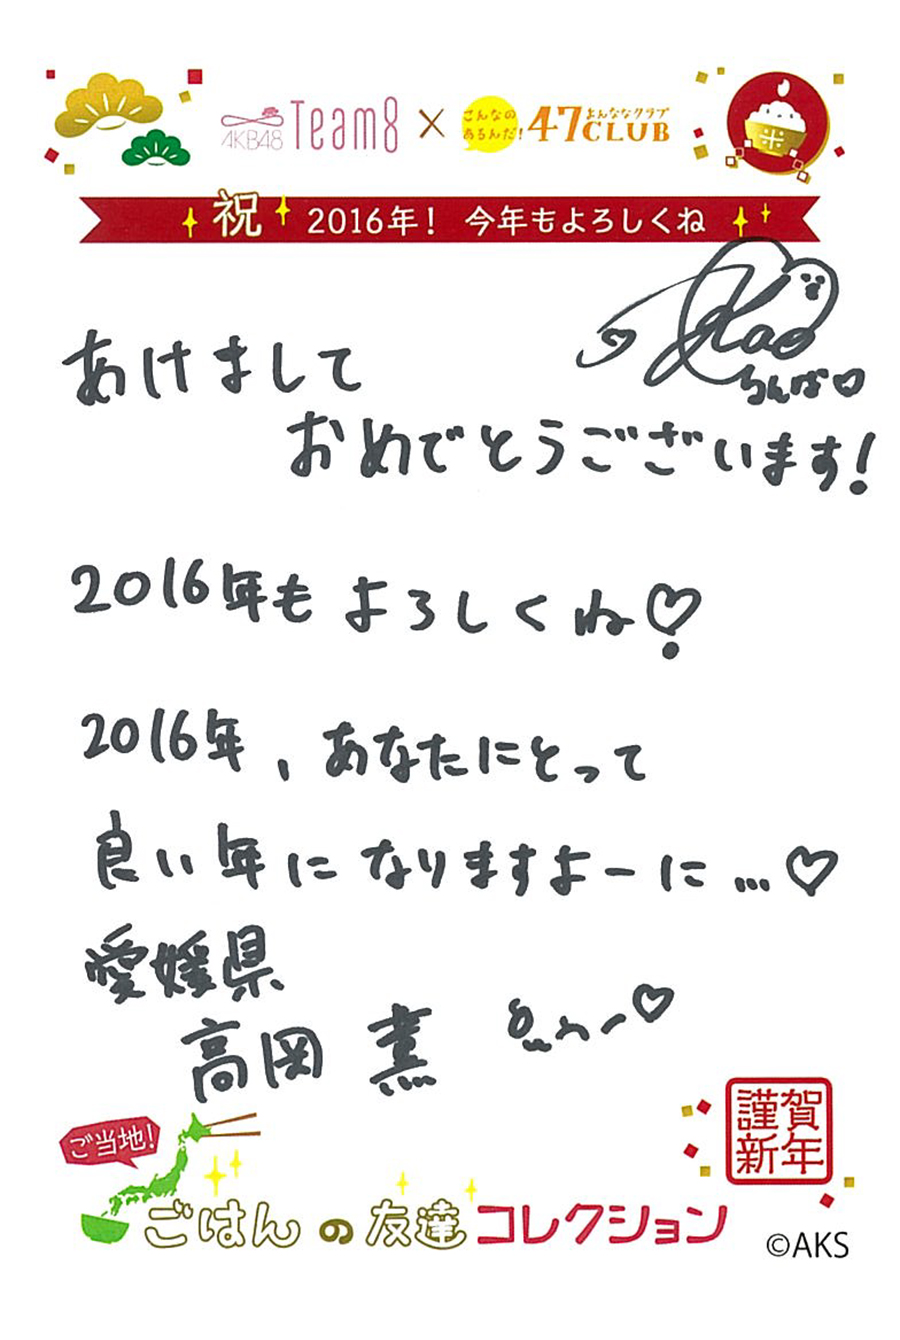 AKB48 Team8 × こんなのあるんだ! 47CLUB よんななクラブ
米
祝 2016年! 今年もよろしくね
Kao
らんば♡
あけまして
おめでとうございます!
2016年もよろしくね♡
2016年、あなたにとって
良い年になりますよーに…♡
愛媛県
高岡 薫
謹賀
新年
ご当地!
ごはんの友達コレクション
©AKS